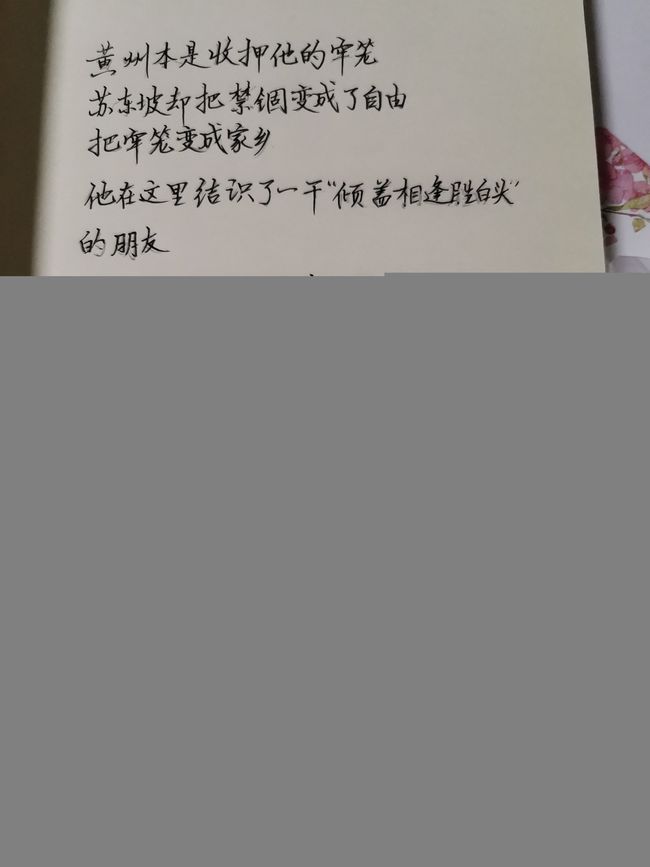 黄州本是收押他的牢笼
苏东坡却把禁锢变成了自由
把牢笼变成家乡
他在这里结识了一干“倾盖相逢胜白头”
的朋友